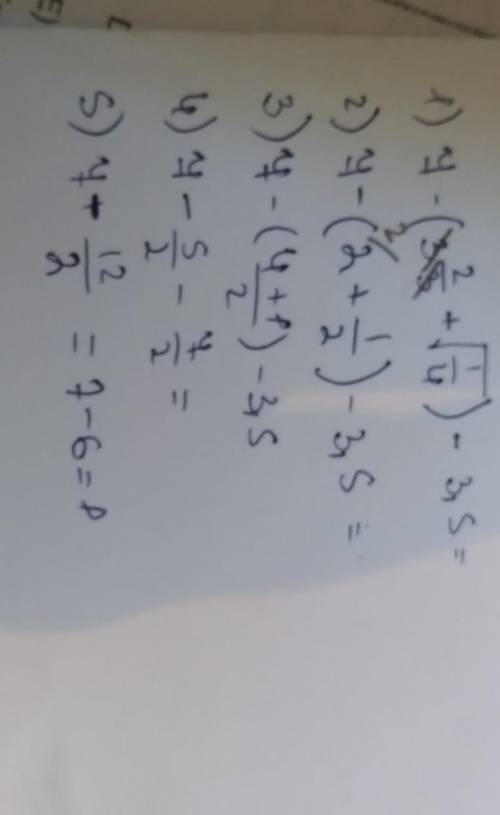 1) 7 - (2 + √1/4) - 3,5 =
2) 7 - (2 + 1/2) - 3,5 =
3) 7 - (4+1/2) - 3,5
4) 7 - 5/2 - 7/2 =
5) 7 - 12/2 = 7 - 6 = 1